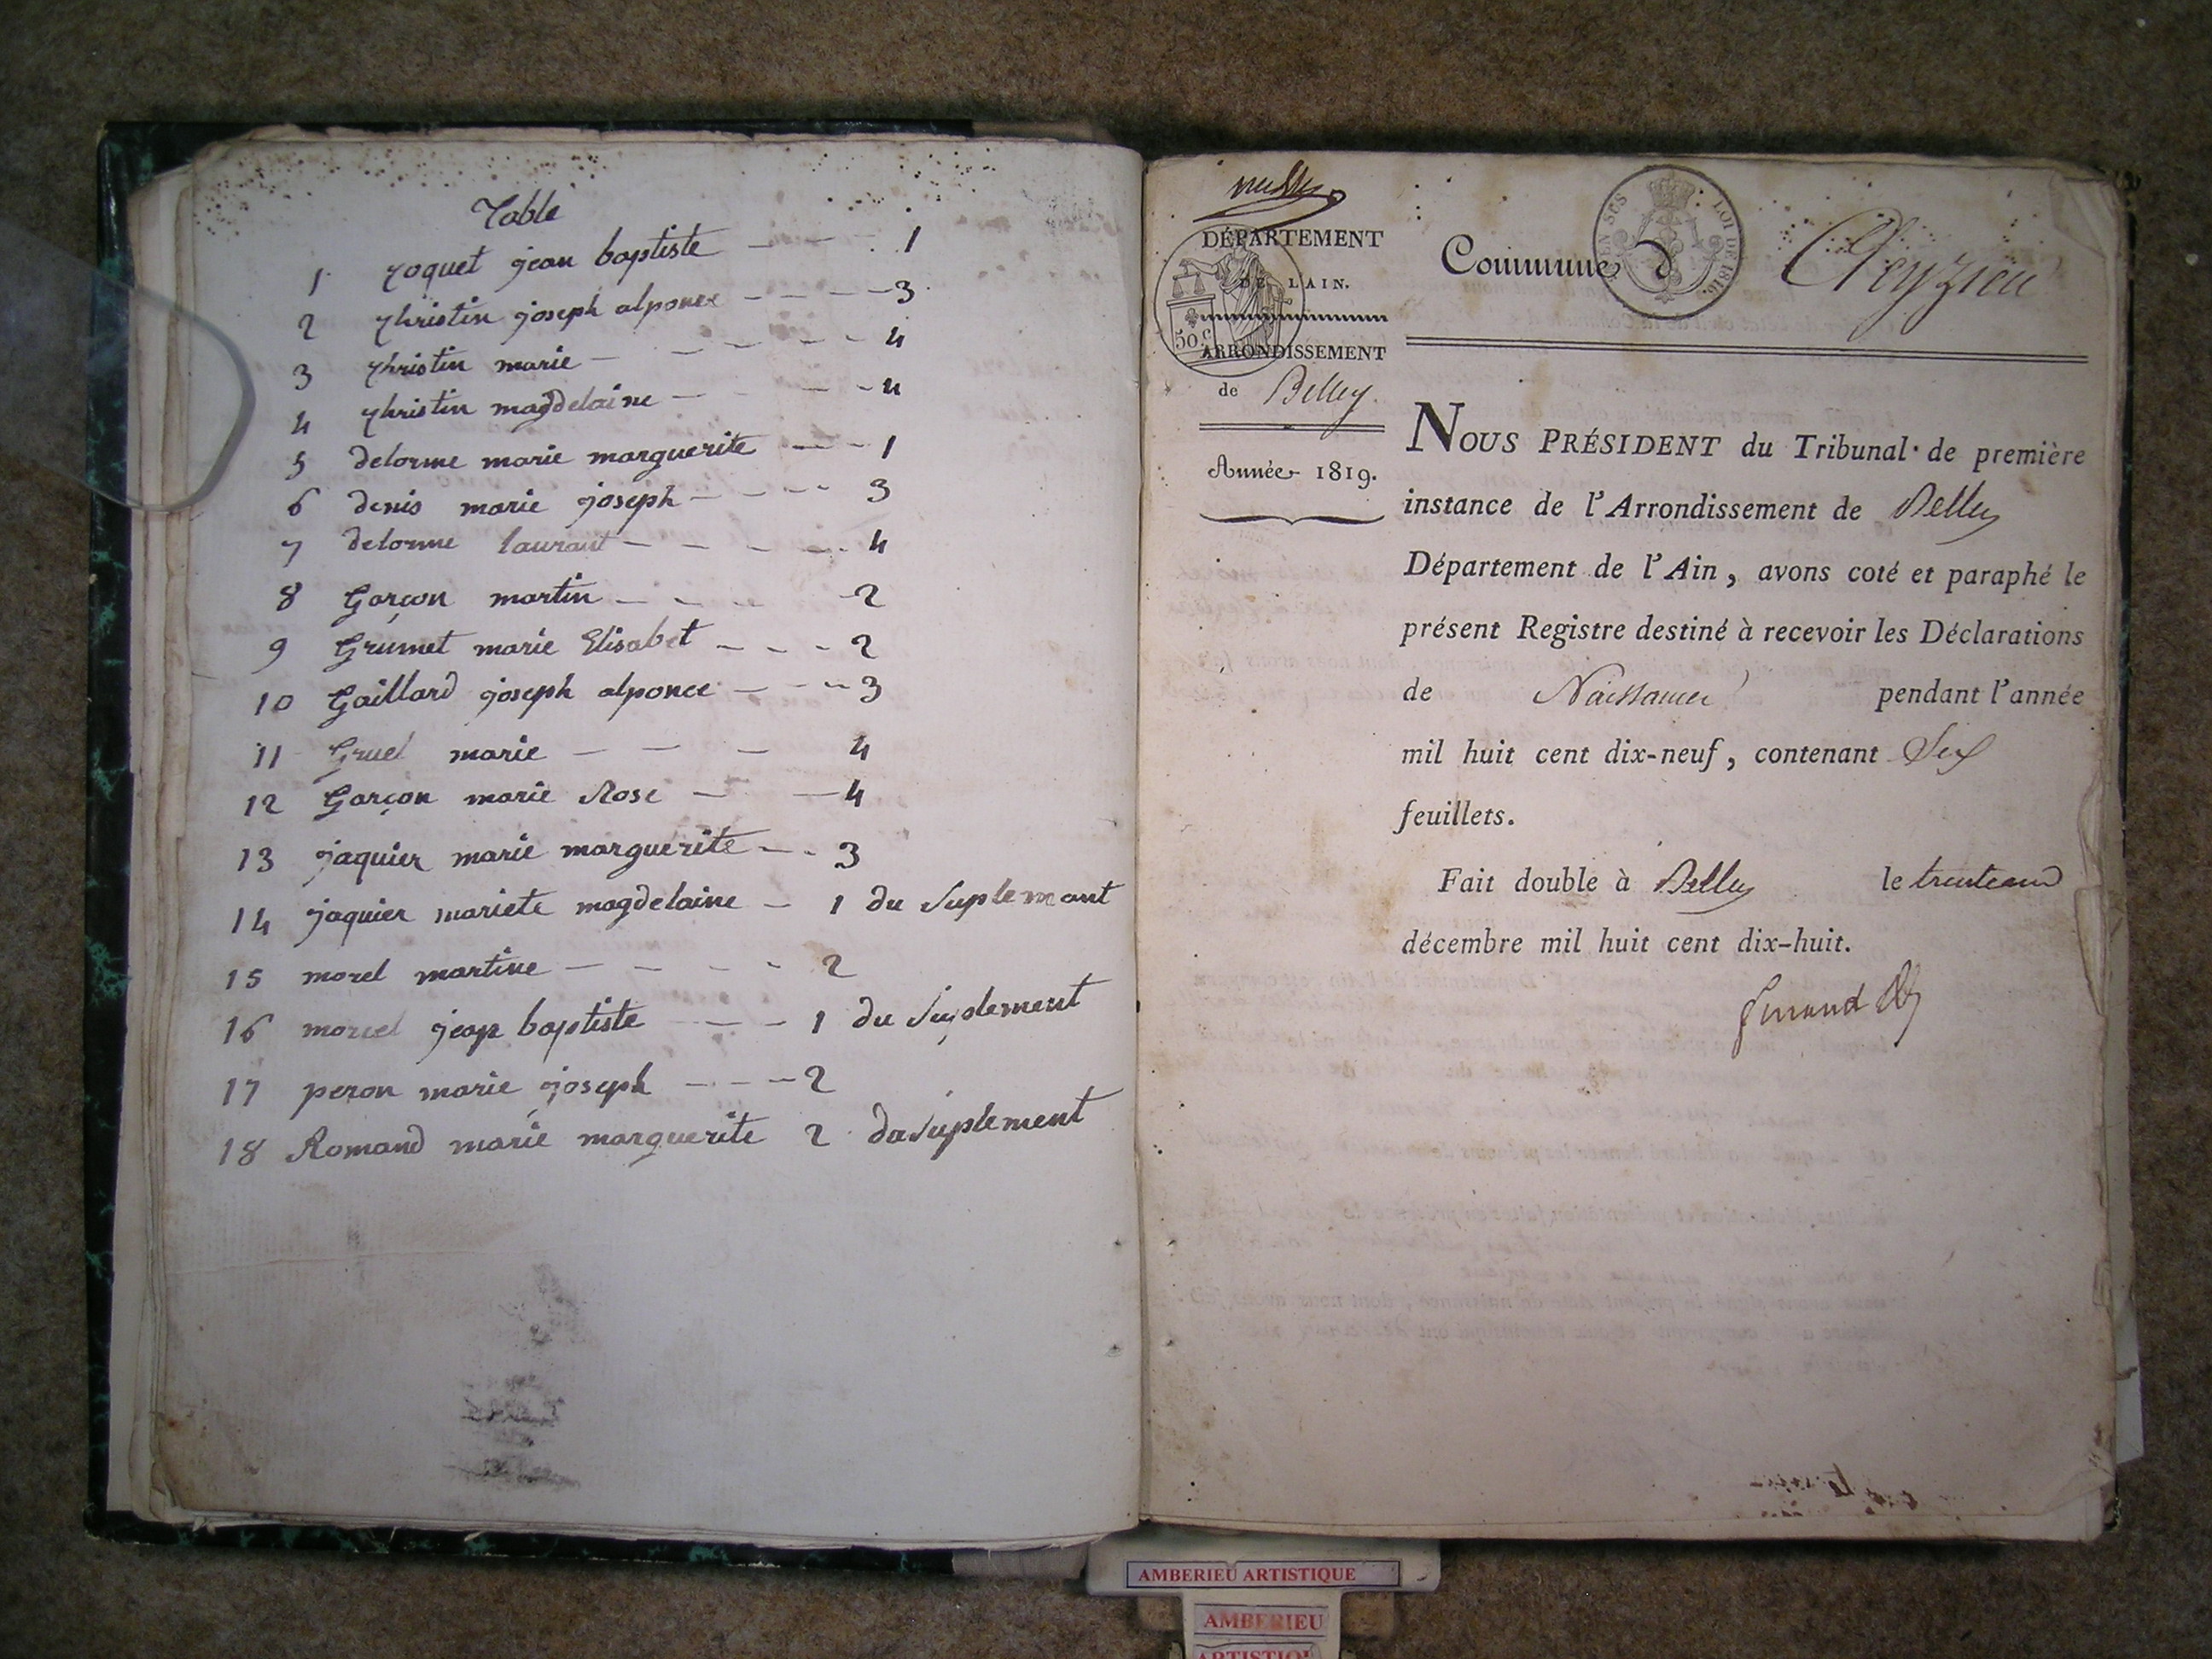 Table
1 Coquet jean baptiste 1
2 Christin joseph alponce 3
3 Christin marie 4
4 Christin magdelaine 4
5 delorme marie marguerite 1
6 denis marie joseph 3
7 delorme laurant 4
8 Garçon martin 2
9 Grumet marie Elisabet 2
10 Gaillard joseph alponce 3
11 Gruel marie 4
12 Garçon marie Rose 4
13 jaquier marie marguerite 3
14 jaquier mariete magdelaine 1 du Suplemant
15 morel martine 2
16 morel jean baptiste 1 du Suplement
17 peron marie joseph 2
18 Romand marie marguerite 2 du Suplement
DÉPARTEMENT
DE L'AIN.
50 c
ARRONDISSEMENT
de Belley.
Année 1819.
EN SUS LOI DE 1816.
Commune d Cleyzieu
NOUS PRÉSIDENT du Tribunal de première
instance de l'Arrondissement de Belley
Département de l'Ain, avons coté et paraphé le
présent Registre destiné à recevoir les Déclarations
de Naissance pendant l'année
mil huit cent dix-neuf, contenant Six
feuillets.
Fait double à Belley le trenteun
décembre mil huit cent dix-huit.
AMBERIEU ARTISTIQUE
AMBERIEU
ARTISTIQUE